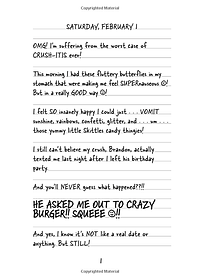 Copyrighted Material
SATURDAY, FEBRUARY 1
OMG! I'm suffering from the worst case of
CRUSH-ITIS ever!
This morning I had these fluttery butterflies in my
stomach that were making me feel SUPERnauseous ☹!
But in a really GOOD way ☺!
I felt SO insanely happy I could just . . . VOMIT
sunshine, rainbows, confetti, glitter, and . . . um . . .
those yummy little Skittles candy thingies!
I still can't believe my crush, Brandon, actually
texted me last night after I left his birthday
party.
And you'll NEVER guess what happened??!!
HE ASKED ME OUT TO CRAZY
BURGER!! SQUEEE ☺!!
And yes, I know it's NOT like a real date or
anything. But STILL!
1
Copyrighted Material